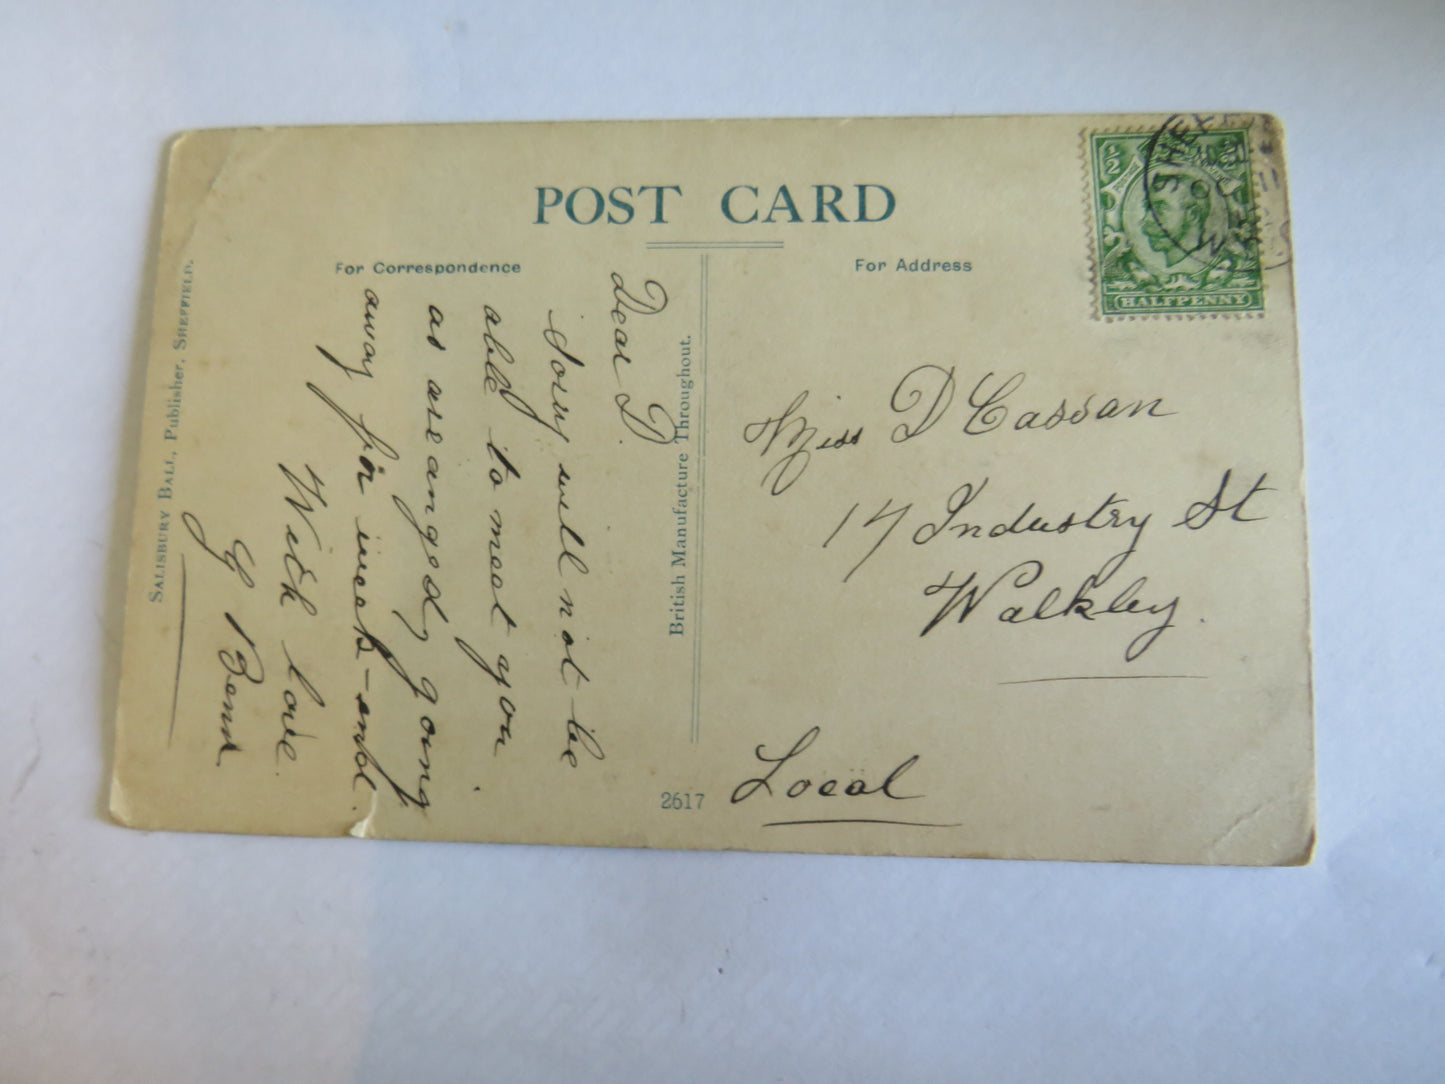 POST CARD
For Correspondence
For Address
Dear D.
Sorry will not be
able to meet you.
as areanged, going
away for week-end.
With love
G Benn
Miss D Cassan
17 Industry St
Walkley.
Local
British Manufacture Throughout.
2617
SALISBURY BALL, Publisher, SHEFFIELD.
1/2
HALFPENNY